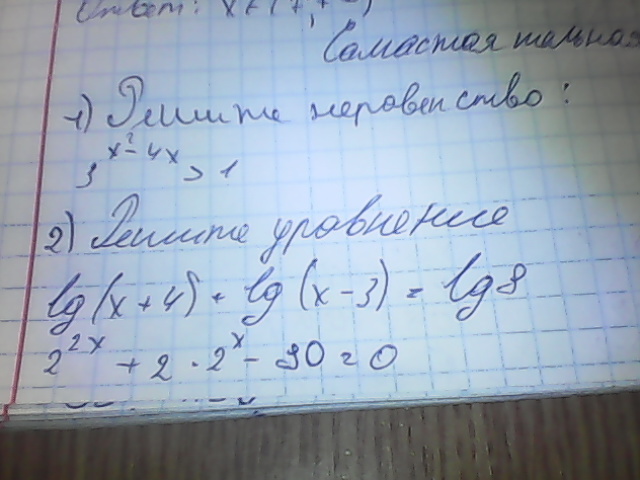 Ответ: x
Самастоятельная
1) Решите неравенство:
3^(x²-4x) > 1
2) Решите уравнение
lg(x+4) + lg(x-3) = lg8
2^(2x) + 2 · 2^x - 30 = 0